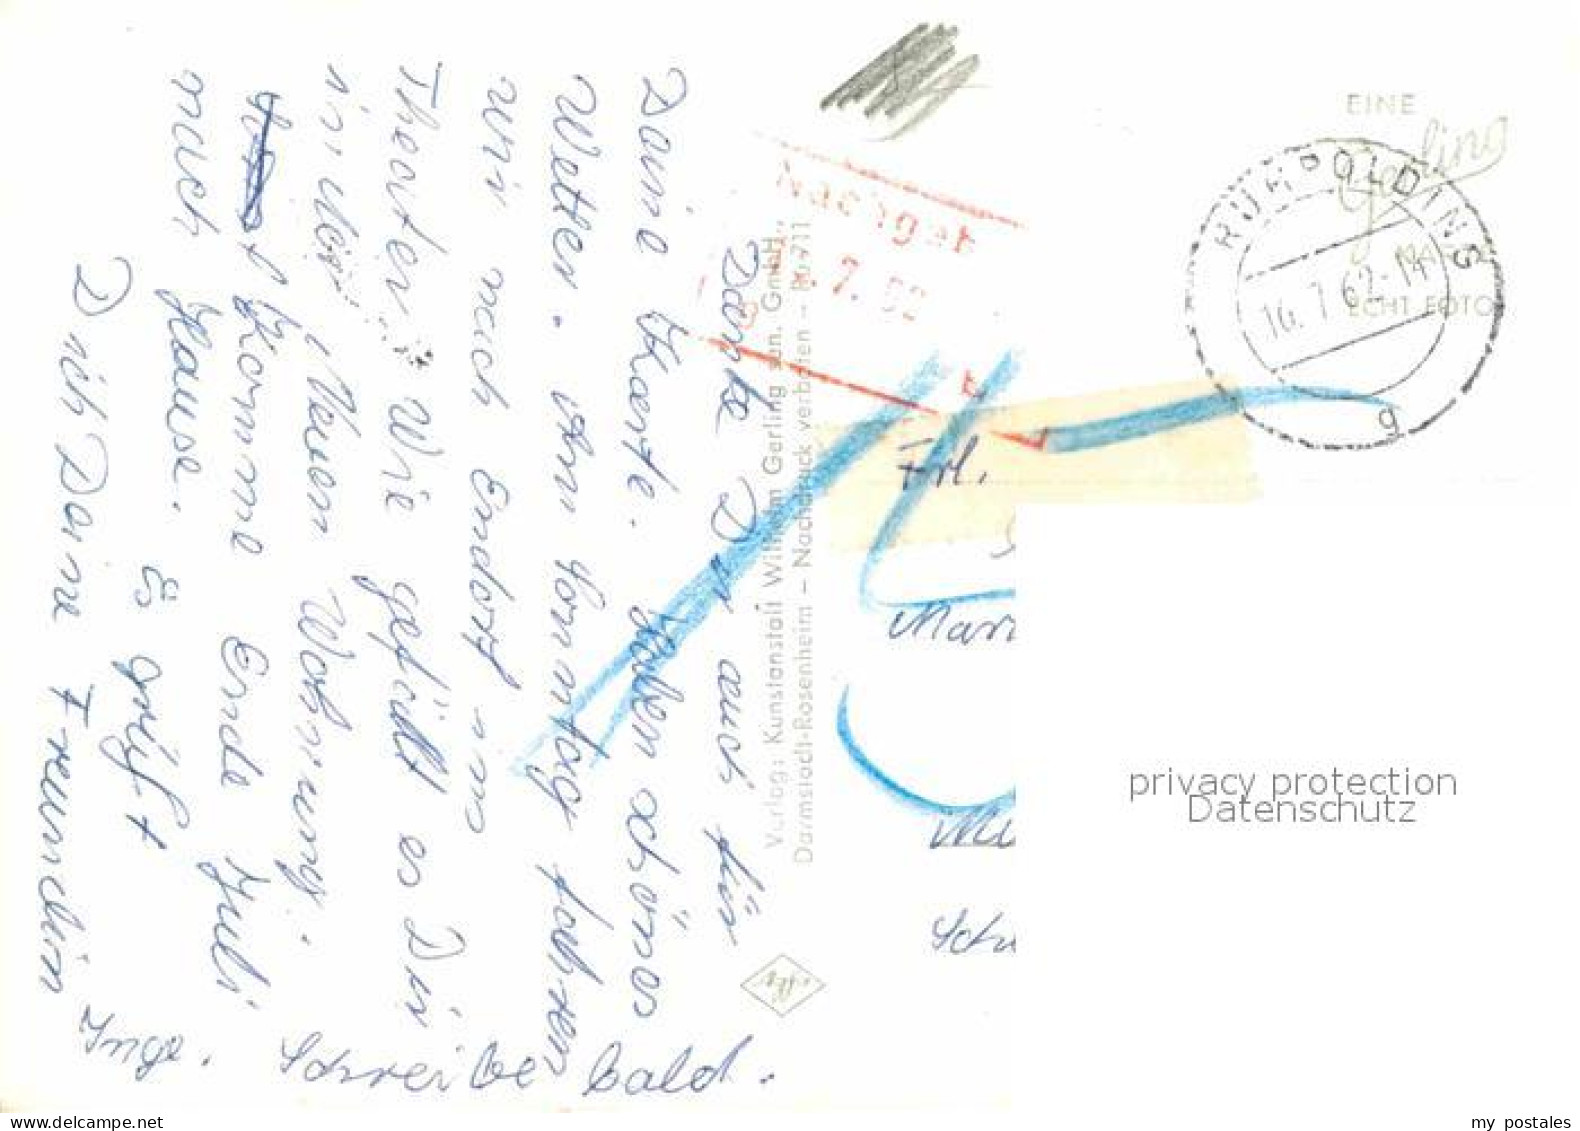 Danke Dir auch für
Deine Karte. Haben schönes
Wetter. Am Sonntag fahren
wir nach Endorf ins
Theater. Wie gefällt es Dir
in der Neuen Wohnung.
Komme Ende Juli
nach Hause. Es grüßt
Dich Deine Freundin
Inge. Schreibe bald.
Verlag: Kunstanstalt Wilhelm Gerling sen. GmbH.,
Darmstadt-Rosenheim – Nachdruck verboten – Ru 711
EINE
Gerling
ECHT FOTO
RUHPOLDING
16. 7. 62-14
g
Frl.
privacy protection
Datenschutz
my postales